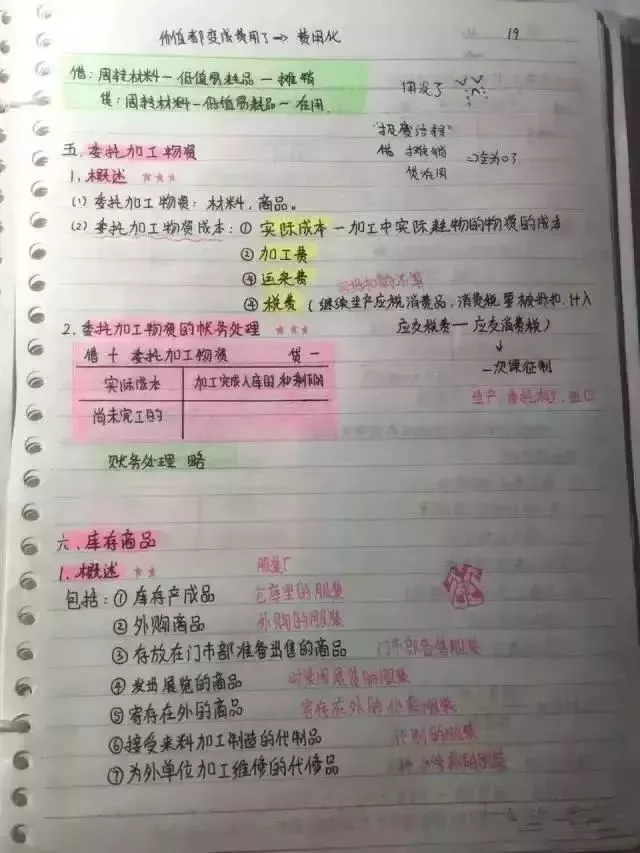 价值都变成费用了→费用化
19
借:周转材料—低值易耗品—摊销
贷:周转材料—低值易耗品—在用
用没了
"报废治程"
借 摊销
贷在用
⇒全为0了
五、委托加工物资
1、概述 ★★★
(1) 委托加工物资:材料,商品。
(2) 委托加工物资成本:① 实际成本 — 加工中实际耗物的物资的成本
② 加工费
④ 运杂费
④ 税费(继续生产应税消费品,消费税 被 扣.计入
应交税费—应交消费税)
↓
一次课征制
生产,委托加工,进口
2、委托加工物资的帐务处理 ★★★
借 + 委托加工物资 贷 —
实际成本 加工完成入库的,和剩下的
尚未完工的
账务处理 略
六、库存商品
1、概述 ★★
服装厂
包括:① 库存产成品 仓库里的服装
② 外购商品 外购的服装
③ 存放在门市部准备出售的商品 门市部备售服装
④ 发出展览的商品 展览的服装
⑤ 寄存在外的商品 寄存在外的 服装
⑥接受来料加工制造的代制品 代制的服装
⑦为外单位加工维修的代修品 的服装